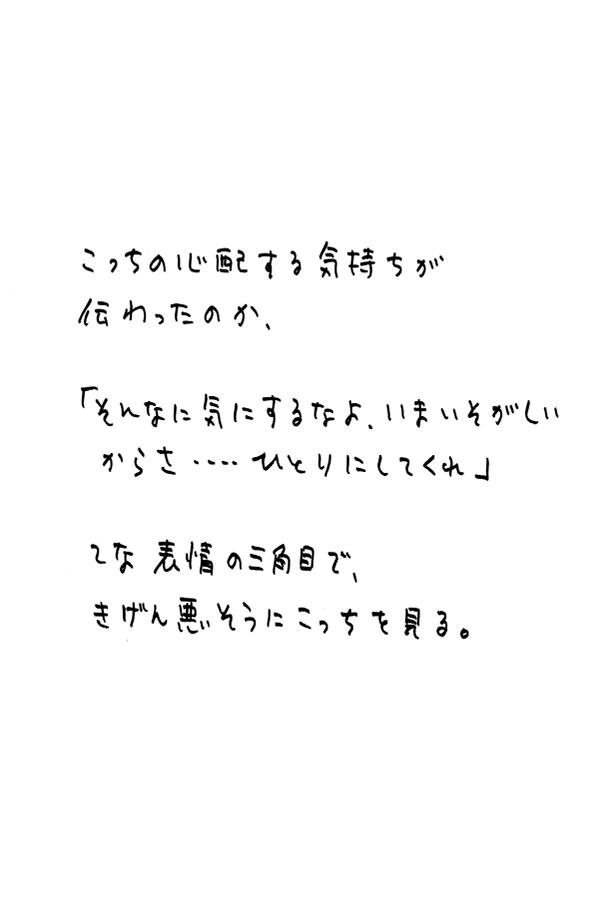 こっちの心配する気持ちが
伝わったのか、
「そんなに気にするなよ、いまいそがしい
からさ‥‥ひとりにしてくれ」
てな表情の三角目で、
きげん悪そうにこっちを見る。